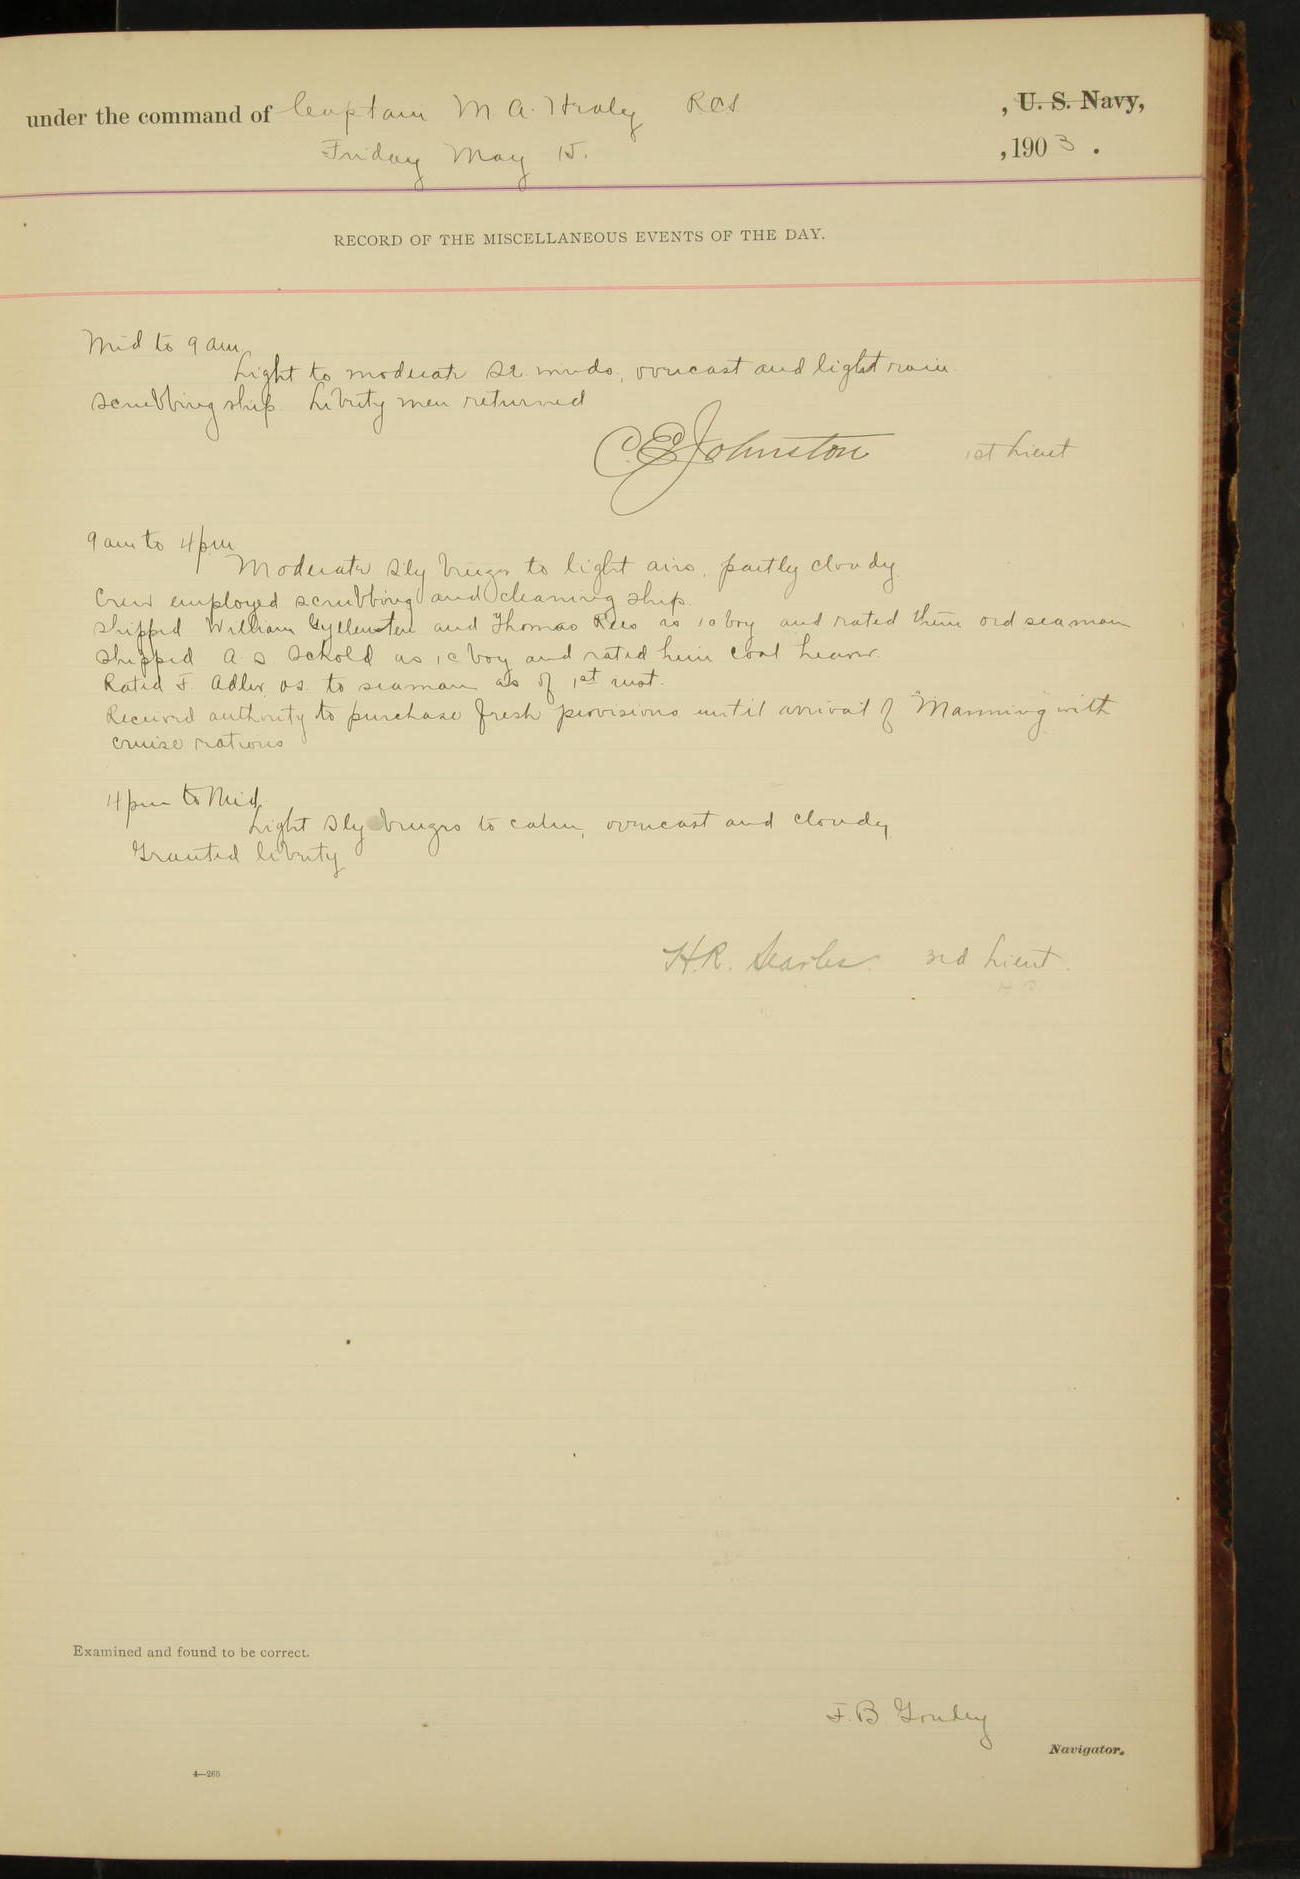 under the command of Captain M A. Healy RCS , U. S. Navy,
Friday May 15. , 1903 .
RECORD OF THE MISCELLANEOUS EVENTS OF THE DAY.
Mid to 9 am
Light to moderate SE winds, overcast and light rain.
Scrubbing ship. Liberty men returned
C. E. Johnston 1st Lieut
9 am to 4 pm
Moderate Sly breezes to light airs, partly cloudy.
Crew employed scrubbing and cleaning ship.
Shipped William Gyllensten and Thomas Rees as 1c boy and rated them ord seaman
Shipped A. S. Schold as 1c boy and rated him coal heaver.
Rated F. Adler o.s. to seaman as of 1st inst.
Received authority to purchase fresh provisions until arrival of "Manning" with
cruise rations
4 pm to Mid.
Light Sly breezes to calm, overcast and cloudy
Granted liberty
H. R. Searles. 3rd Lieut.
Examined and found to be correct.
F. B. Goudey
Navigator.
4—265